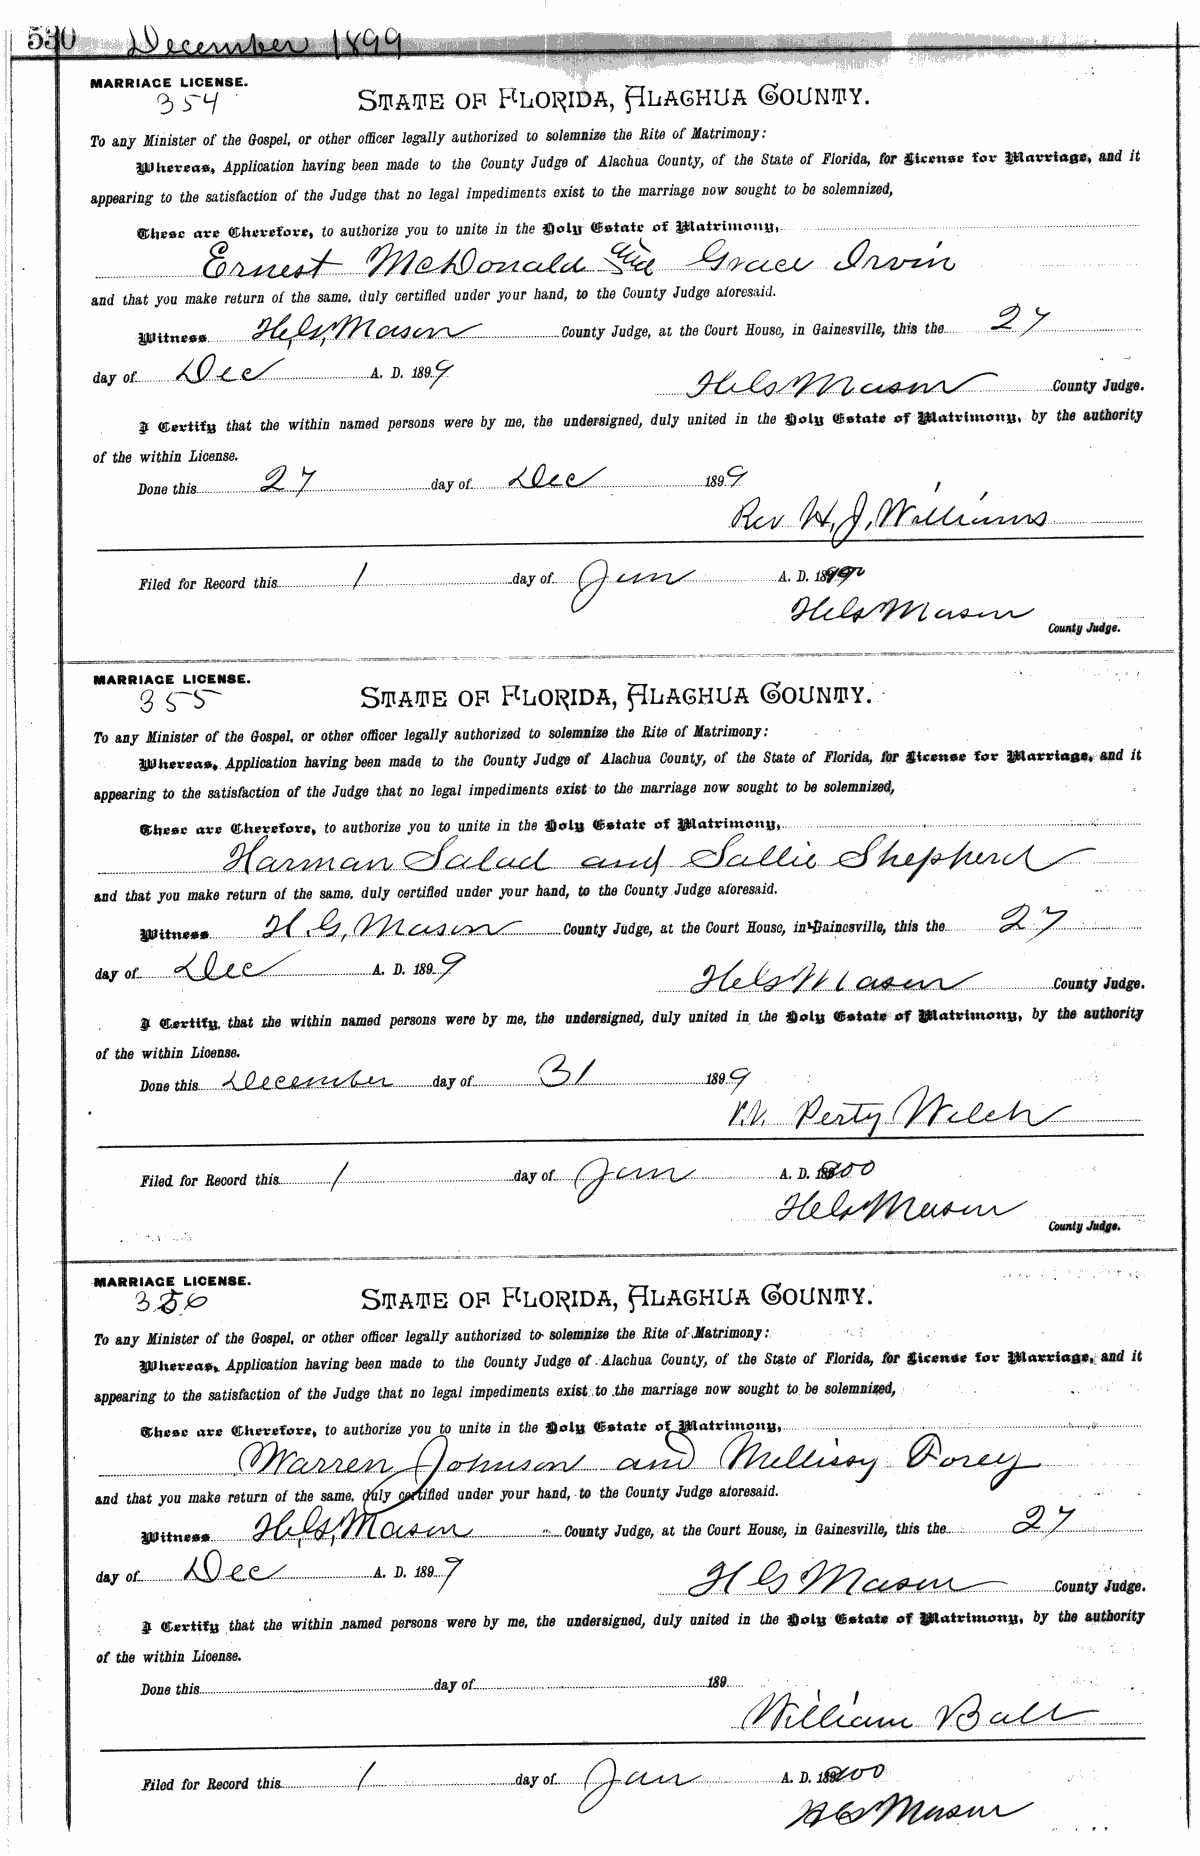 530 December 1899
MARRIAGE LICENSE.
354
STATE OF FLORIDA, ALACHUA COUNTY.
To any Minister of the Gospel, or other officer legally authorized to solemnize the Rite of Matrimony:
Whereas, Application having been made to the County Judge of Alachua County, of the State of Florida, for License for Marriage, and it
appearing to the satisfaction of the Judge that no legal impediments exist to the marriage now sought to be solemnized,
These are Therefore, to authorize you to unite in the Holy Estate of Matrimony,
Ernest McDonald and Grace Irvin
and that you make return of the same, duly certified under your hand, to the County Judge aforesaid.
Witness H.G. Mason County Judge, at the Court House, in Gainesville, this the 27
day of Dec A. D. 1899
H G Mason County Judge.
I Certify that the within named persons were by me, the undersigned, duly united in the Holy Estate of Matrimony, by the authority
of the within License.
Done this 27 day of Dec 1899
Rev H. J. Williams
Filed for Record this 1 day of Jan A. D.
H G Mason
County Judge.
MARRIAGE LICENSE.
355
STATE OF FLORIDA, ALACHUA COUNTY.
To any Minister of the Gospel, or other officer legally authorized to solemnize the Rite of Matrimony:
Whereas, Application having been made to the County Judge of Alachua County, of the State of Florida, for License for Marriage, and it
appearing to the satisfaction of the Judge that no legal impediments exist to the marriage now sought to be solemnized,
These are Therefore, to authorize you to unite in the Holy Estate of Matrimony,
Harman Salad and Sallie Shepherd
and that you make return of the same, duly certified under your hand, to the County Judge aforesaid.
Witness H. G. Mason County Judge, at the Court House, in Gainesville, this the 27
day of Dec A. D. 1899
H G Mason County Judge.
I Certify, that the within named persons were by me, the undersigned, duly united in the Holy Estate of Matrimony, by the authority
of the within License.
Done this December day of 31 1899
Perty Welch
Filed for Record this 1 day of Jan A. D.
H G Mason
County Judge.
MARRIAGE LICENSE.
356
STATE OF FLORIDA, ALACHUA COUNTY.
To any Minister of the Gospel, or other officer legally authorized to solemnize the Rite of Matrimony:
Whereas, Application having been made to the County Judge of Alachua County, of the State of Florida, for License for Marriage, and it
appearing to the satisfaction of the Judge that no legal impediments exist to the marriage now sought to be solemnized,
These are Therefore, to authorize you to unite in the Holy Estate of Matrimony,
Warren Johnson and Mellissy Forey
and that you make return of the same, duly certified under your hand, to the County Judge aforesaid.
Witness H.G. Mason County Judge, at the Court House, in Gainesville, this the 27
day of Dec A. D. 1899
H G Mason County Judge.
I Certify that the within named persons were by me, the undersigned, duly united in the Holy Estate of Matrimony, by the authority
of the within License.
Done this day of 189
William Ball
Filed for Record this 1 day of Jan A. D.
H G Mason